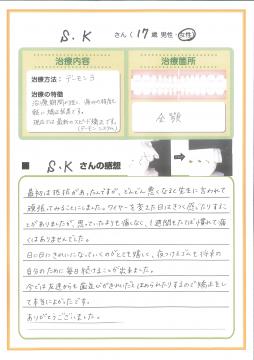 S.K さん (17歳 男性・女性)
治療内容
治療箇所
治療方法：デーモン3
治療の特徴
治療期間が短く、痛みの特徴も
軽い矯正装置です。
現在では最新のスピード矯正です。
(デーモンシステム)
全顎
■ S.K さんの感想
最初は抵抗があったんですが、どんどん悪くなると先生に言われて
頑張ってみることにしました。ワイヤーを変えた日はきつく感じたりするこ
とがありましたが、思っていたよりも痛くなく、1週間もたてば慣れて痛
くはありませんでした。
日に日にきれいになっていくのがとても嬉しく、夜つけるゴムも将来の
自分のために毎日続けることが出来ました。
今では友達からも歯並びがきれいだとほめられたりするので矯正をし
て本当によかったです。
ありがとうございました。